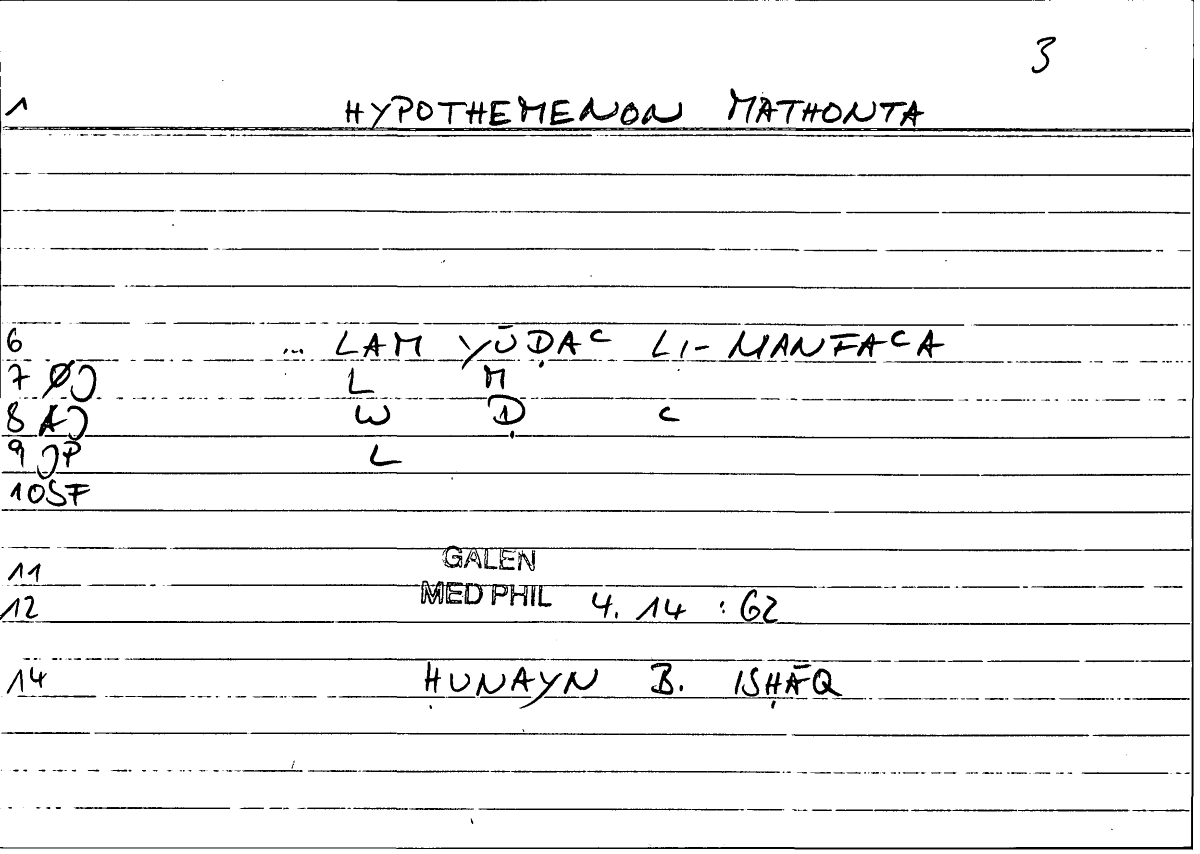 3
1 HYPOTHEMENON MATHONTA
6 ... LAM YŪḌAC LI-MANFACA
7 Ø L M
8 A W Ḍ C
9 P L
10 SF
11 GALEN
12 MED PHIL 4. 14 : 62
14 ḤUNAYN B. ISḤĀQ